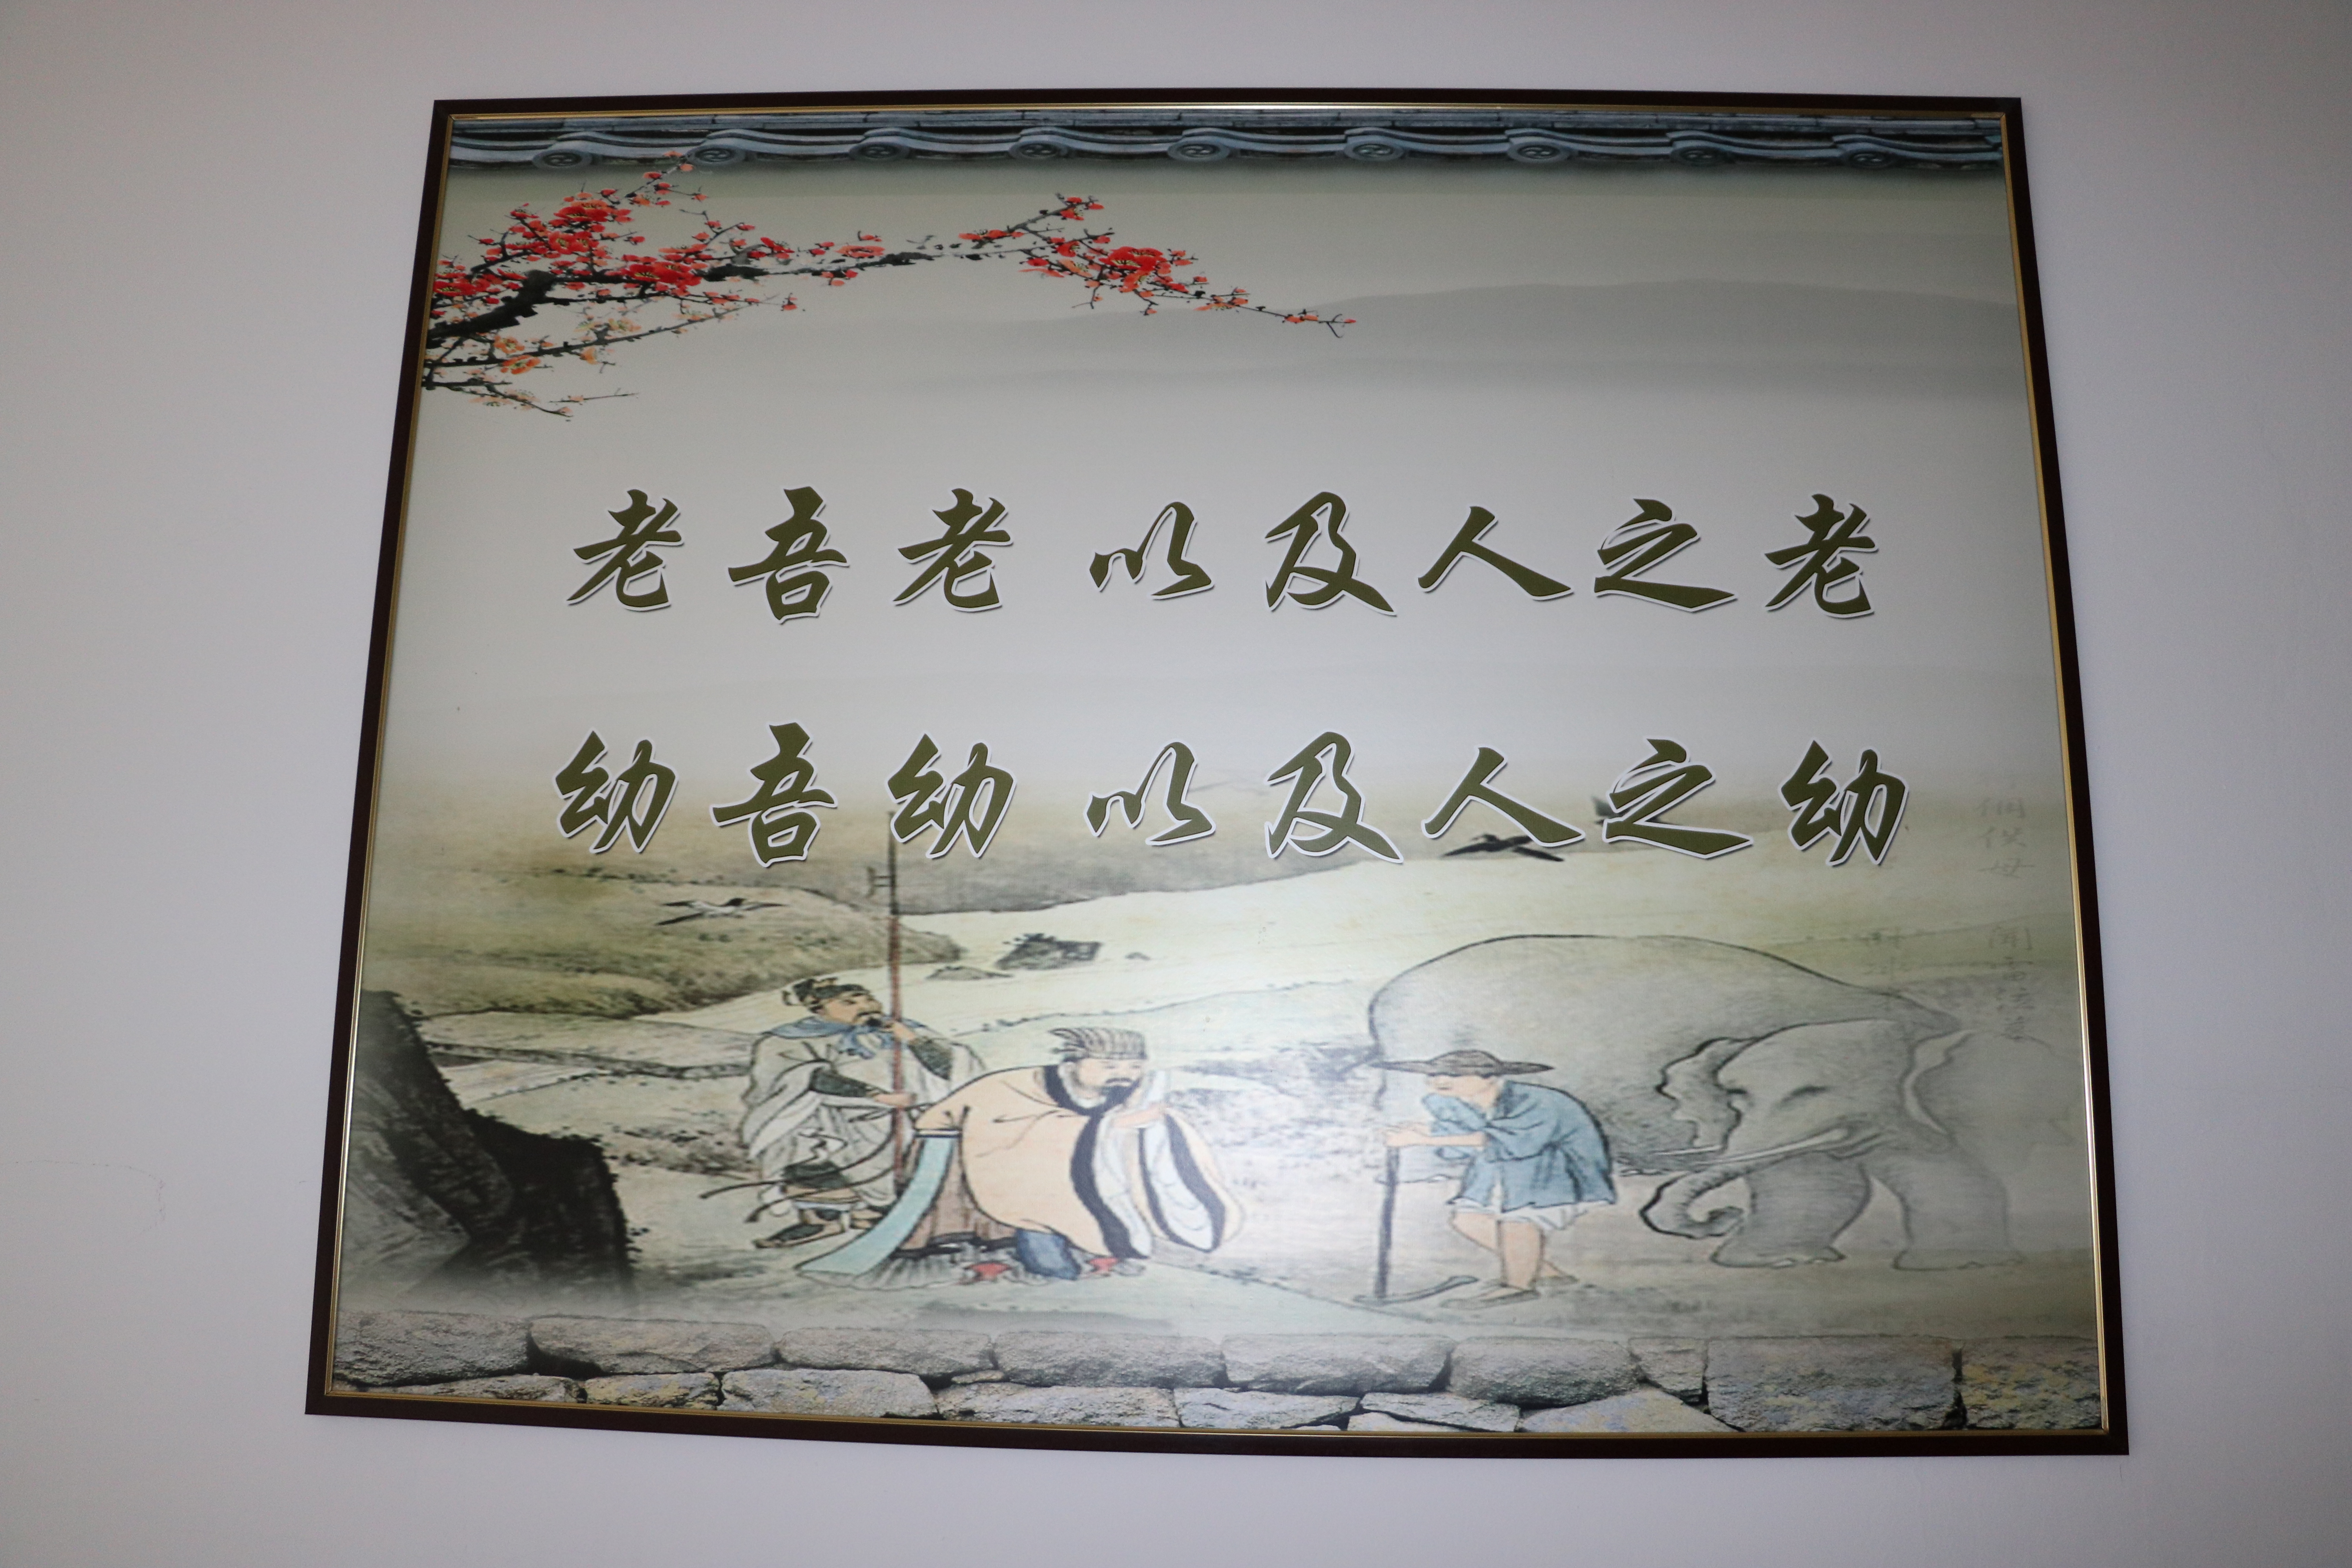 老吾老以及人之老
幼吾幼以及人之幼